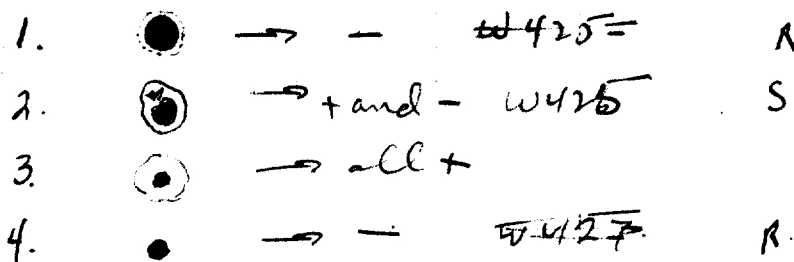 1. → − W425 R
2. → + and − W425 S
3. → all +
4. → − W427 R.